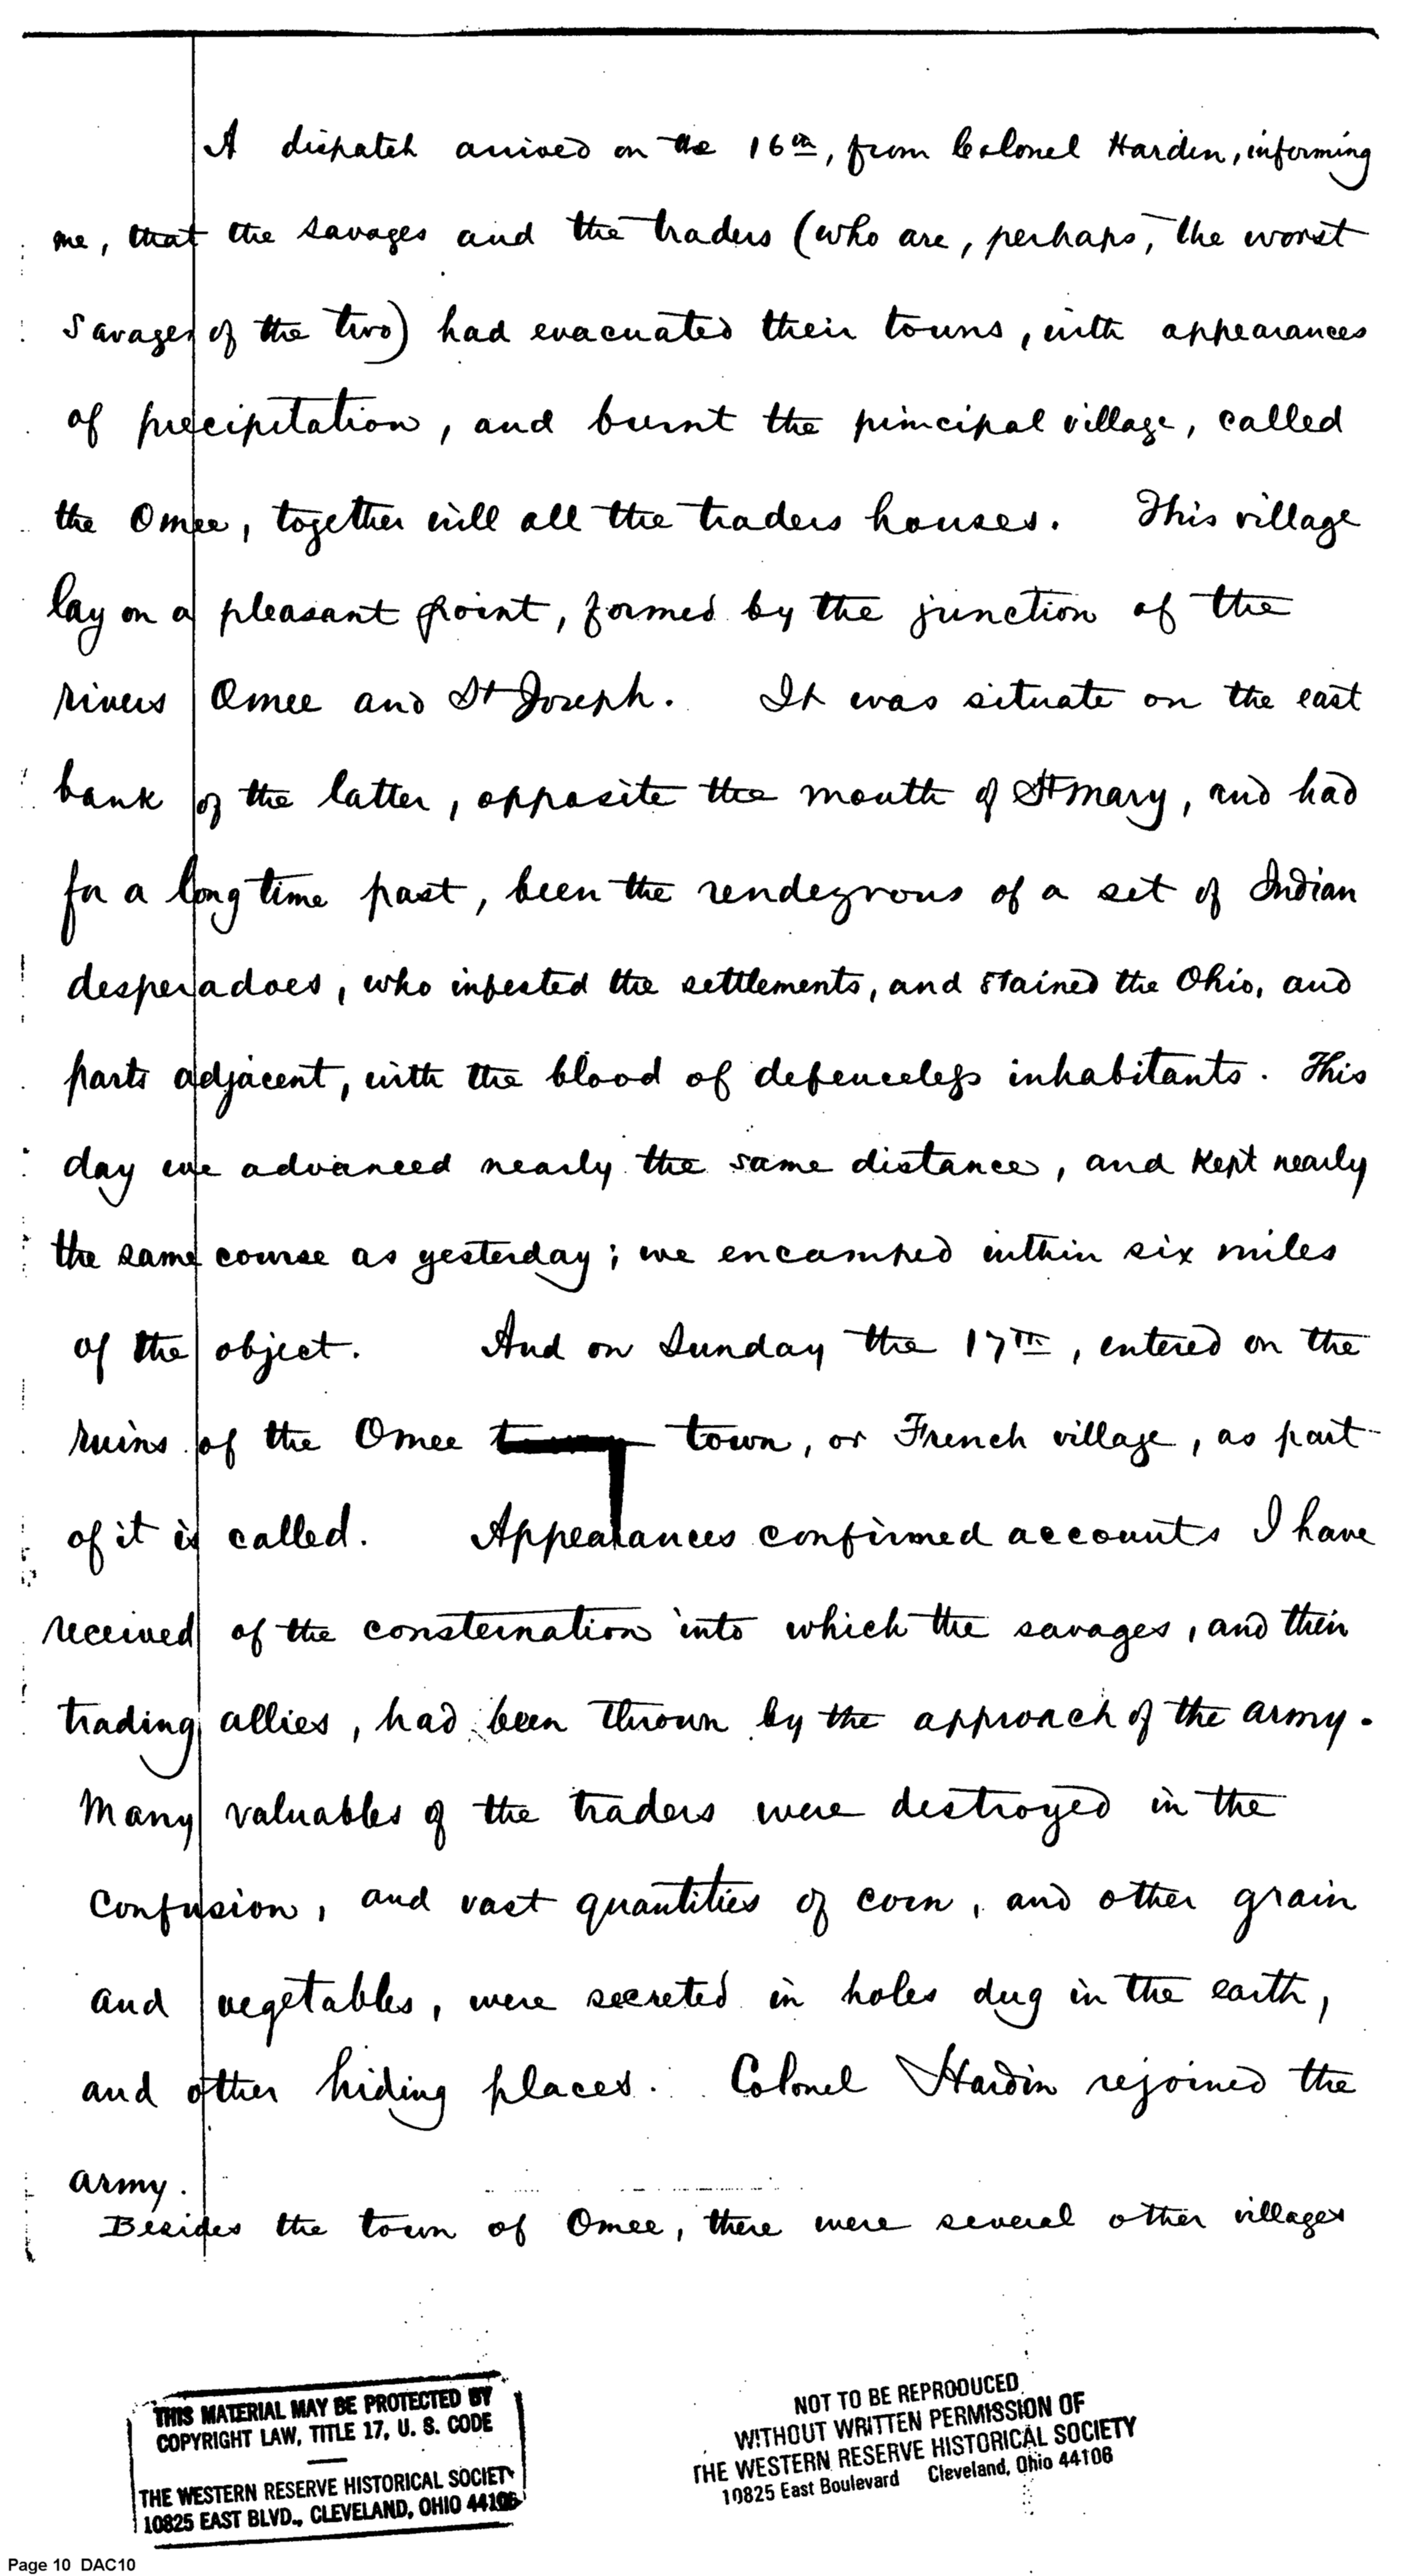 A dispatch arrived on the 16th, from Colonel Harden, informing
me, that the savages and the traders (who are, perhaps, the worst
savages of the two) had evacuated their towns, with appearances
of precipitation, and burnt the principal village, called
the Omee, together will all the traders houses. This village
lay on a pleasant point, formed by the junction of the
rivers Omee and St Joseph. It was situate on the east
bank of the latter, opposite the mouth of St Mary, and had
for a long time past, been the rendezvous of a set of Indian
desperadoes, who infested the settlements, and stained the Ohio, and
parts adjacent, with the blood of defenceless inhabitants. This
day we advanced nearly the same distance, and kept nearly
the same course as yesterday; we encamped within six miles
of the object. And on Sunday the 17th, entered on the
ruins of the Omee town, or French village, as part
of it is called. Appearances confirmed accounts I have
received of the consternation into which the savages, and their
trading allies, had been thrown by the approach of the army.
Many valuables of the traders were destroyed in the
confusion, and vast quantities of corn, and other grain
and vegetables, were secreted in holes dug in the earth,
and other hiding places. Colonel Hardin rejoined the
army.
Besides the town of Omee, there were several other villages
THIS MATERIAL MAY BE PROTECTED BY
COPYRIGHT LAW, TITLE 17, U. S. CODE
THE WESTERN RESERVE HISTORICAL SOCIETY
10825 EAST BLVD., CLEVELAND, OHIO 44106
NOT TO BE REPRODUCED
WITHOUT WRITTEN PERMISSION OF
THE WESTERN RESERVE HISTORICAL SOCIETY
10825 East Boulevard Cleveland, Ohio 44106
Page 10 DAC10